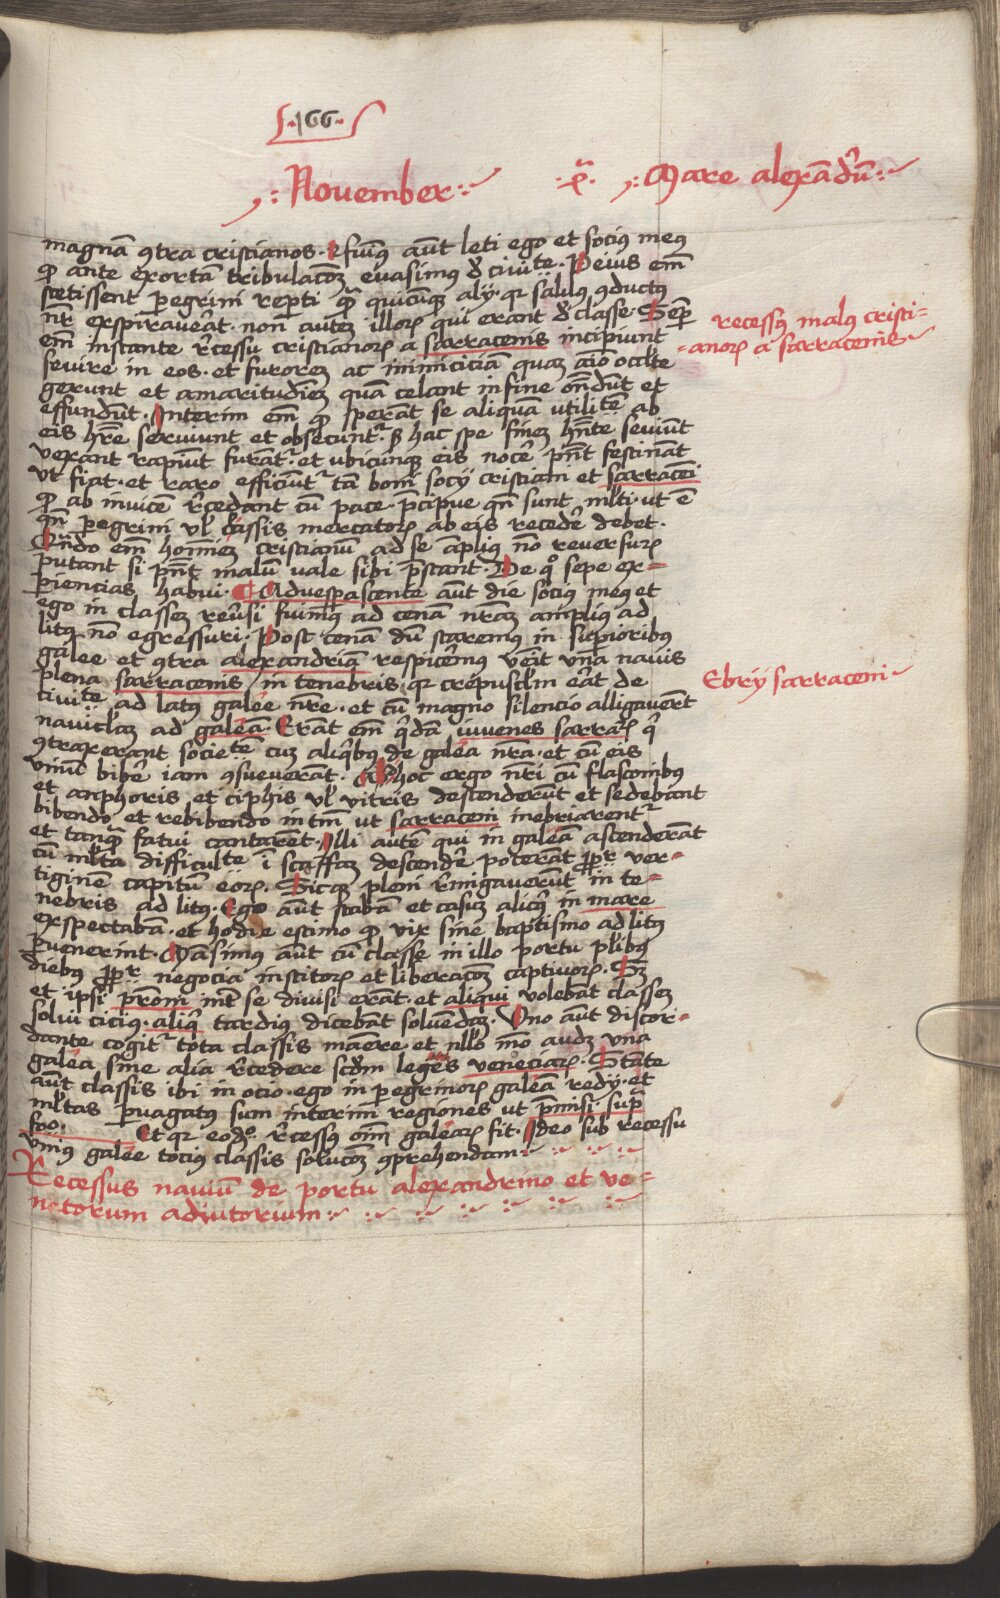 .166.
November x̄. Mare alexādrū
magnā 9tra cristianos. Efuiꝰ aūt leti ego et sociꝰ meꝰ
ꝙ ante exortā tribulacōꝫ evasimꝰ d̄ ciuite. Peius em̄
stetissent peregrini reperti qͣ quicūqꝫ alij. qr saluꝰ 9ductꝰ
nr̄ expiraverāt. non autem illorꝝ qui erant d̄ classe. Semp̄
em̄ instante r̄cessu cristianorꝝ a sarracenis incipiunt
sevire in eos. et furorem ac inimiciciā quaꝫ aīo occlte
gerunt et amaritudīeꝫ quā celant in fine ondūt et
effundūt. Interim em̄ ꝙ sperāt se aliquā utilitēꝫ ab
eis hr̄e serviunt et obsecūntr. sꝫ hac spe fīneꝫ hn̄te seviūt
vexant rapiūt furātr. et ubicūnqꝫ eis nocē pn̄t festināt
ut fiat. et raro efficiūtr tā boni socij cristiani et sarraceni
ꝙ ab invicē r̄cedant cū pace. p̄cipue qn̄ sunt ml̄ti. ut ē
qn̄ peregrini vl̄ classis mercatorꝝ ab eis recedē debet.
Qn̄do em̄ homineꝫ cristianū ad se ampliꝰ nō reversurꝝ
putant si pn̄t malū vale sibi p̄stant. De qͦ sepe ex-
periencias habui. Advesperascente aūt die sociꝰ meꝰ et
ego in classeꝫ reversi fuimꝰ ad cenā nr̄aꝫ ampliꝰ ad
litꝰ nō egressuri. Post cenā dū staremꝰ in superioribꝰ
galee et 9tra alexandriā respicerēmꝰ venit vna navis
plena sarracenis in tenebris qr crepusclm erāt de
civite ad latꝰ galee nr̄e. et cū magno silencio alligavert
naviclaꝫ ad galeā. Erāt em̄ qͥdā iuvenes sarrac̄ qͥ
9traxerant societeꝫ cuꝫ aliqͥbꝰ de galea nr̄a. et cū eis
vinū bibē iam 9sueverāt. Ad hoc ergo nr̄i cū flasconibꝰ
et anphoris et ciphis vl̄ vitris descenderūt et sedebant
bibendo et rebibendo in tm̄ ut sarraceni inebriarentr
et tanqͣ fatui cantarēt. Illi autē qui in galeā ascenderāt
cū ml̄ta difficulte ī scaffaꝫ descendē poterāt ꝓptr ver-
tiginē capitū eorꝝ. Sicqꝫ pleni r̄migaverūt in te-
nebris ad litꝰ. Ego aūt stabā et casuꝫ alicꝰ in mare
exspectabā. et hodie estimo ꝙ vix sine baptismo ad litꝰ
pervenerint. Māsimꝰ aūt cū classe in illo portu plibꝰ
diebꝰ ꝓptr negocia institorꝝ et liberacōꝫ captivorꝝ. Sꝫ
et ipsi prōni int̄ se divisi erāt. et aliqui volebāt classeꝫ
solvi ciciꝰ. aliqͥ tardiꝰ dicebāt solvēdaꝫ. Uno aūt discor-
dante cogitr tota classis manere et nllō mō audꝫ vna
galea sine alia r̄cedere scd̄m leges veneciarꝝ. Stāte
aūt classis ibi in ocio. ego in peregrinorꝝ galeā redij. et
ml̄tas pervagatꝰ sum interim regiones ut p̄misi supͣ
feo. Et qr eodꝰ r̄cessꝰ om̄ galearꝝ fit. Ideo sub recessu
vniꝰ galee tociꝰ classis solucōꝫ 9prehendam
Recessus naviū de portu alexandrino et ve-
netorum adiutorium
recessꝰ malꝰ cristi-
-anorꝝ a sarracenis
Ebrij sarraceni